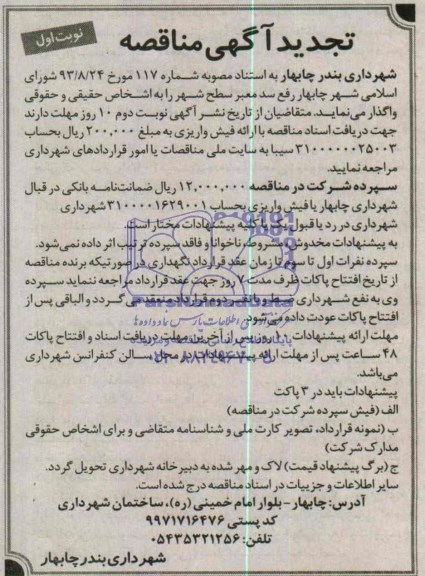 نوبت اول
تجدید آگهی مناقصه
شهرداری بندر چابهار به استناد مصوبه شماره ۱۱۷ مورخ ۹۳/۸/۲۴ شورای
اسلامی شهر چابهار رفع سد معبر سطح شهر را به اشخاص حقیقی و حقوقی
واگذار می‌نماید. متقاضیان از تاریخ نشر آگهی نوبت دوم ۱۰ روز مهلت دارند
جهت دریافت اسناد مناقصه با ارائه فیش واریزی به مبلغ ۲۰۰,۰۰۰ ریال بحساب
۳۱۰۰۰۰۰۰۲۵۰۰۳ سیبا به سایت ملی مناقصات یا امور قراردادهای شهرداری
مراجعه نمایید.
سپرده شرکت در مناقصه ۱۲,۰۰۰,۰۰۰ ریال ضمانت‌نامه بانکی در قبال
شهرداری چابهار یا فیش واریزی بحساب ۳۱۰۰۰۰۱۶۲۹۰۰۱ شهرداری
شهرداری در رد یا قبول یک یا کلیه پیشنهادات مختار است.
به پیشنهادات مخدوش، مشروط، ناخوانا و فاقد سپرده ترتیب اثر داده نمی‌شود.
سپرده نفرات اول تا سوم تا زمان عقد قرارداد نگهداری در صورتیکه برنده مناقصه
از تاریخ افتتاح پاکات ظرف مدت ۷ روز جهت عقد قرارداد مراجعه ننماید سپرده
وی به نفع شهرداری ضبط و با نفر دوم قرارداد منعقد می‌گردد و الباقی پس از
افتتاح پاکات عودت داده می‌شود.
مهلت ارائه پیشنهادات روز پس از آخرین مهلت دریافت اسناد و افتتاح پاکات
۴۸ ساعت پس از مهلت ارائه پیشنهادات در محل سالن کنفرانس شهرداری
می‌باشد.
پیشنهادات باید در ۳ پاکت
الف (فیش سپرده شرکت در مناقصه)
ب (نمونه قرارداد، تصویر کارت ملی و شناسنامه متقاضی و برای اشخاص حقوقی
مدارک شرکت)
ج (برگ پیشنهاد قیمت) لاک و مهر شده به دبیرخانه شهرداری تحویل گردد.
سایر اطلاعات و جزییات در اسناد مناقصه درج شده است.
آدرس: چابهار - بلوار امام خمینی (ره)، ساختمان شهرداری
کد پستی ۹۹۷۱۷۱۶۴۷۶
تلفن: ۰۵۴۳۵۳۲۱۲۵۶
شهرداری بندر چابهار